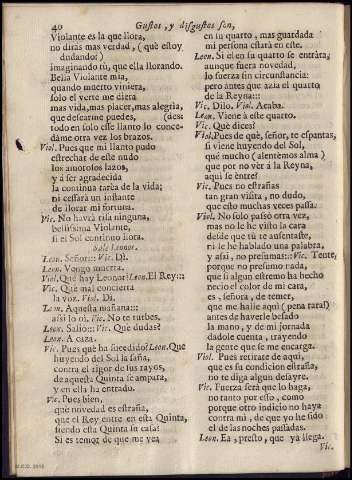 40
Gustos, y disgustos son,
Violante es la que llora,
no dirás mas verdad, (què estoy
dudando!)
imaginando tù, que ella llorando.
Bella Violante mia,
quando muerto viniera,
solo el verte me diera
mas vida, mas placer, mas alegria,
que desearme puedes, (des:
todo en solo esse llanto lo conce-
dame otra vez los brazos.
Viol. Pues que mi llanto pudo
estrechar de este nudo
los amorosos lazos,
y à ser agradecida
la continua tarèa de la vida;
ni cessarà un instante
de llorar mi fortuna.
Vic. No havrà risa ninguna,
bellissima Violante,
si el Sol continuo llora.
Sale Leonor.
Leon. Señor::: Vic. Di.
Leon. Vengo muerta.
Viol. Què hay Leonor? Leon. El Rey:::
Vic. Què mal concierta
la voz. Viol. Di.
Leon. Aquesta mañana:::
assi lo oì. Vic. No te turbes.
Leon. Saliò::: Vic. Què dudas?
Leon. A caza.
Vic. Pues què ha sucedido? Leon. Que
huyendo del Sol la saña,
contra el rigor de sus rayos,
de aquesta Quinta se ampara,
y en ella ha entrado.
Vic. Pues bien,
què novedad es estraña,
que el Rey entre en esta Quinta,
siendo esta Quinta su casa?
Si es temor de que me vea
en su quarto, mas guardada
mi persona estarà en este.
Leon. Si èl en su quarto se entràra,
aunque fuera novedad,
lo fuerza sin circunstancia:
pero antes que azia el quarto
de la Reyna:::
Vic. Dilo. Viol. Acaba.
Leon. Viene à este quarto.
Vic. Què dices?
Viol. Pues de què, señor, te espantas,
si viene huyendo del Sol,
què mucho (alentèmos alma)
que por no vèr à la Reyna,
aqui se entre?
Vic. Pues no estrañas
tan gran visita, no dudo,
que esto muchas veces passa.
Viol. No solo passò otra vez,
mas no le he visto la cara
desde que tù te ausentaste,
ni le he hablado una palabra,
y assi, no presumas::: Vic. Tente,
porque no presumo nada,
que si algun estremo ha hecho
necio el color de mi cara,
es, señora, de temer,
que me halle aqui (pena rara!)
antes de haverle besado
la mano, y de mi jornada
dadole cuenta, trayendo
la gente que se me encarga.
Viol. Pues retirate de aqui,
que es su condicion estraña,
no te diga algun desayre.
Vic. Fuerza serà que lo haga,
no tanto por esto, como
porque otro indicio no haya
contra mi, de que yo he sido
el de las noches passadas.
Leon. Ea, presto, que yà llega.
Vic.